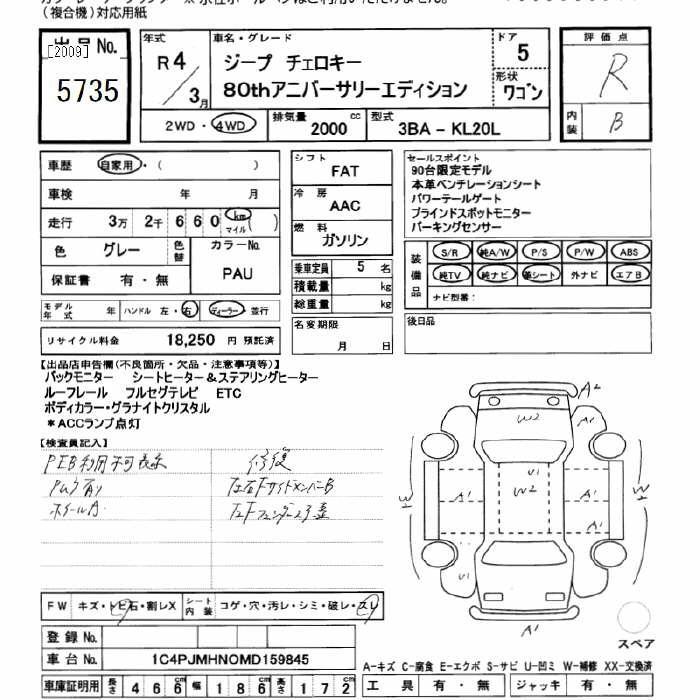 (複合機)対応用紙
出品No.
[2009]
5735
年式
R4/3月
車名・グレード
ジープ チェロキー
80thアニバーサリーエディション
ドア
5
形状
ワゴン
2WD・4WD
排気量
2000 cc
型式
3BA - KL20L
評価点
R
内装
B
車歴 自家用・( )
車検 年 月
走行 3万 2千 6 6 0 km マイル( )
色 グレー
色替
カラーNo.
PAU
保証書 有・無
シフト
FAT
冷房
AAC
燃料
ガソリン
乗車定員 5 名
積載量 kg
総重量 kg
セールスポイント
90台限定モデル
本革ベンチレーションシート
パワーテールゲート
ブラインドスポットモニター
パーキングセンサー
装備品
S/R 純A/W P/S P/W ABS
純TV 純ナビ 革シート 外ナビ エアB
ナビ型番:
モデル年式 年 ハンドル 左・右 ディーラー・並行
リサイクル料金 18,250 円 預託済
名変期限
月 日
後日品
【出品店申告欄(不良箇所・欠品・注意事項等)】
バックモニター シートヒーター&ステアリングヒーター
ルーフレール フルセグテレビ ETC
ボディカラー・グラナイトクリスタル
*ACCランプ点灯
【検査員記入】
修復
A2
W2
U1
W2
A1
A1
U1
A1
A1
A1
A1
FW キズ・トビ石・割レX
シート内装 コゲ・穴・汚レ・シミ・破レ・スレ
登録No.
車台No. 1C4PJMHN0MD159845
スペア
A-キズ C-腐食 E-エクボ S-サビ U-凹ミ W-補修 XX-交換済
車庫証明用 長さ 4 6 6 幅 1 8 6 高さ 1 7 2 cm
工具 有・無 ジャッキ 有・無